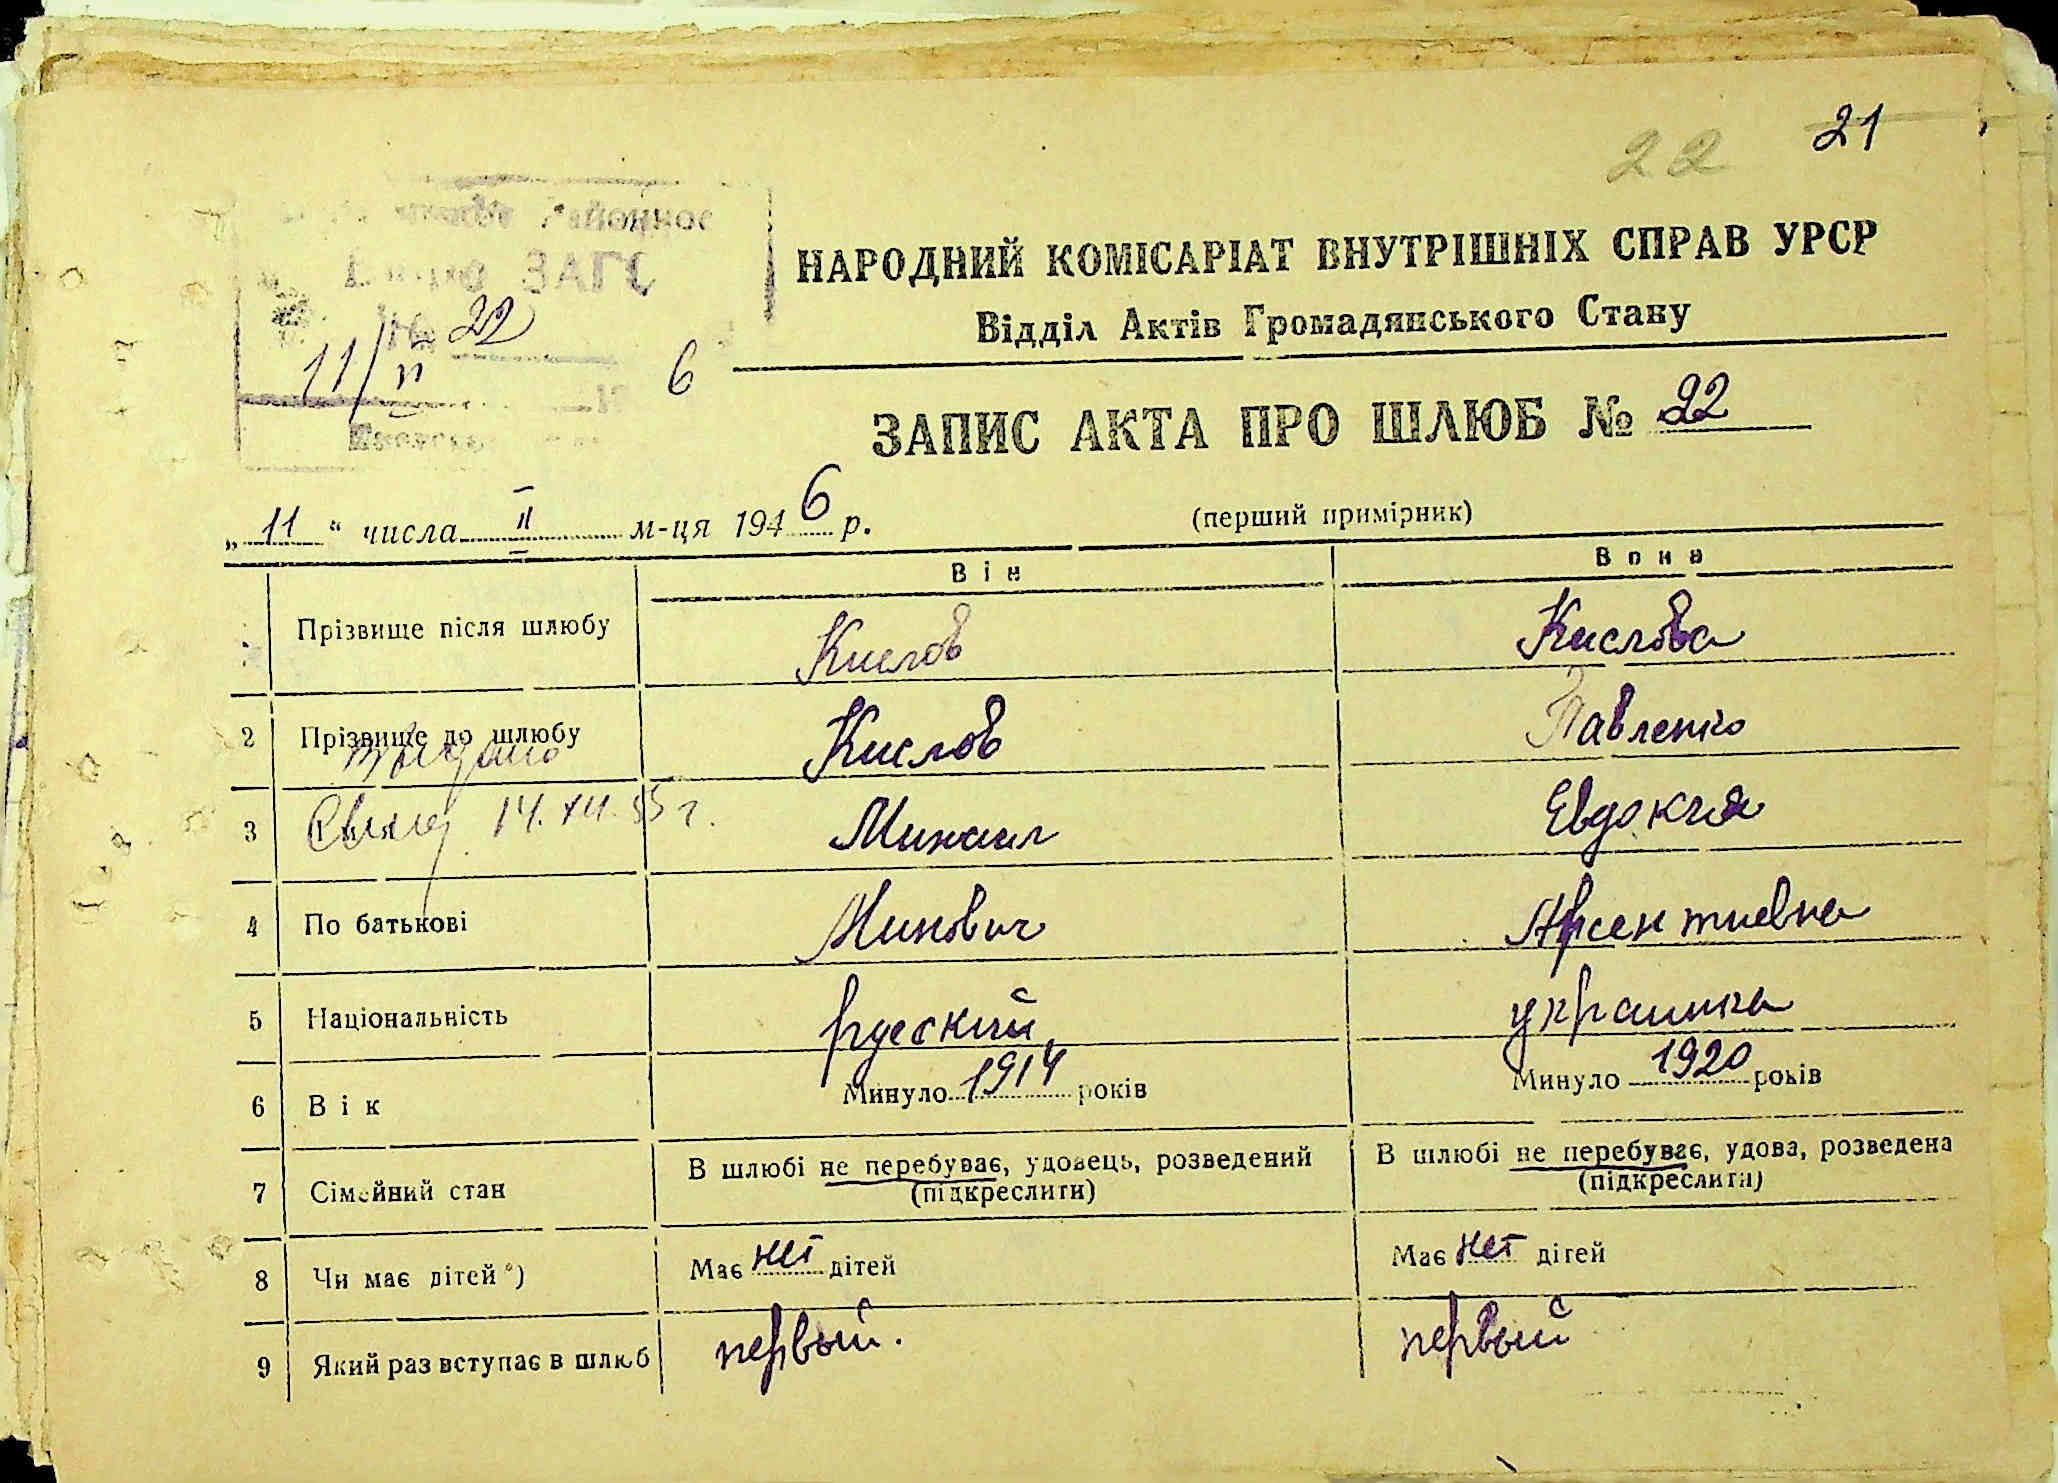 21
22
Районное
ЗАГС
№ 22
11/II 6
НАРОДНИЙ КОМІСАРІАТ ВНУТРІШНІХ СПРАВ УРСР
Відділ Актів Громадянського Стану
ЗАПИС АКТА ПРО ШЛЮБ № 22
„ 11 “ числа II м-ця 1946 р.
(перший примірник)
Він Вона
Прізвище після шлюбу Кислов Кислова
2 Прізвище до шлюбу Кислов Павленко
выдано
3 Михаил Евдокия
14.XII.55 г.
4 По батькові Минович Арсентиевна
5 Національність русский украинка
6 Вік Минуло 1914 років Минуло 1920 років
7 Сімейний стан В шлюбі не перебуває, удовець, розведений В шлюбі не перебуває, удова, розведена
(підкреслити) (підкреслити)
8 Чи має дітей*) Має нет дітей Має нет дітей
9 Який раз вступає в шлюб первый. первый